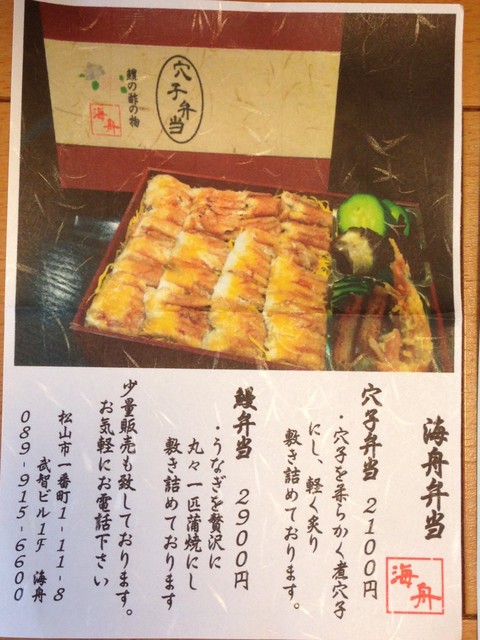 穴子弁当
鰻の酢の物
海舟
海舟弁当
海舟
穴子弁当 2100円
・穴子を柔らかく煮穴子
にし、軽く炙り
敷き詰めております。
鰻弁当 2900円
・うなぎを贅沢に
丸々一匹蒲焼にし
敷き詰めております
少量販売も致しております。
お気軽にお電話下さい
松山市一番町1-11-8
武智ビル1F 海舟
089-915-6600